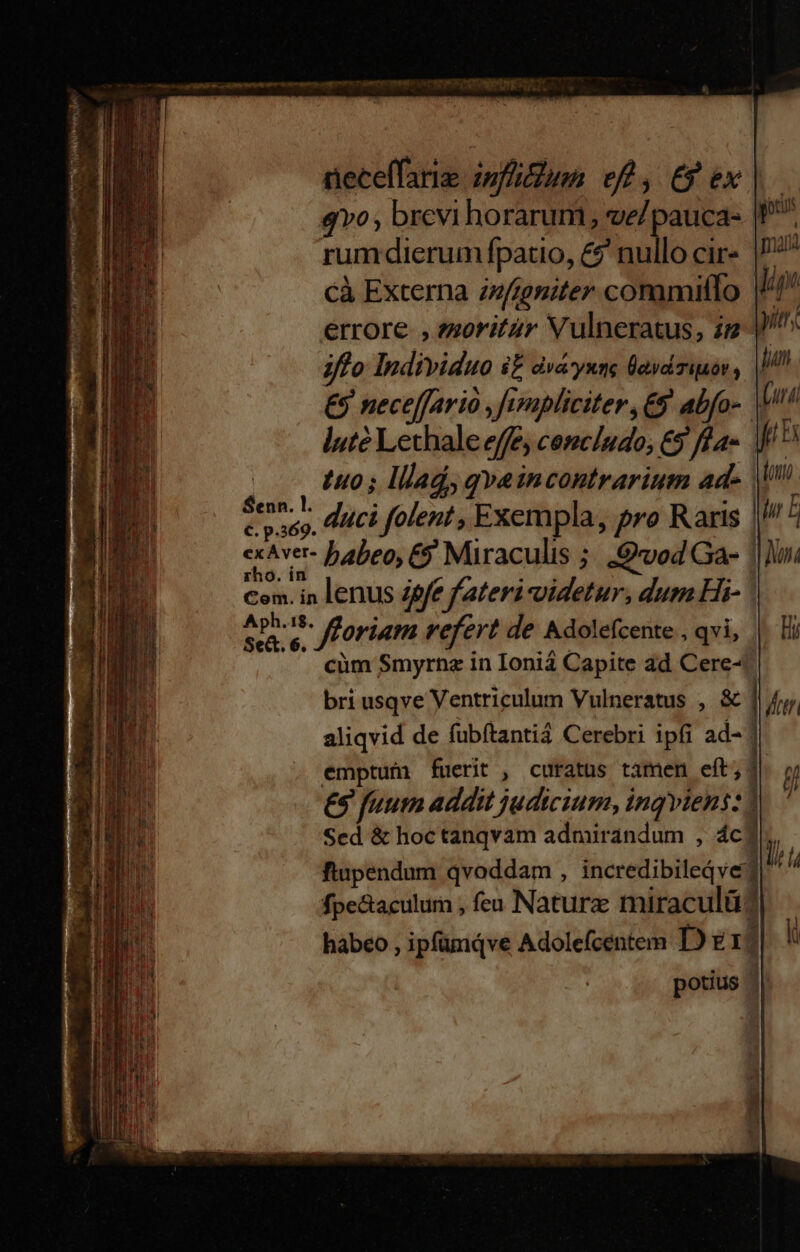 neceſſariæ inflictum eſt, & ex
qvo, brevi horarum, vel pauca-
rum dierum ſpatio, & nullo cir-
cà Externa inſigniter commiſſo
errore, moritur Vulneratus, in
iſto Individuo ἐξ ἀνάγκης θανάσιμον,
& neceſſariò, ſimpliciter, & abſo-
lutè Lethale eſſe, concludo, & ſta-
tuo; Illaq; qvæ in contrarium ad-
duci ſolent, Exempla, pro Raris
habeo, & Miraculis; Qvod Ga-
lenus ipſe fateri videtur, dum Hi-
ſtoriam refert de Adoleſcente, qvi,
cùm Smyrnæ in Ioniá Capite ad Cere-
bri usqve Ventriculum Vulneratus, &
aliqvid de ſubſtantiá Cerebri ipſi ad-
emptum fuerit, curatus tamen eſt;
& ſuum addit judicium, inqviens:
Sed & hoc tanqvam admirandum, ác
ſtupendum qvoddam, incredibileq́ve
ſpectaculum, ſeu Naturæ miraculũ
habeo, ipſũmq́ve Adoleſcentem DEI
potius
Senn. l.
c. p.369.
ex Aver-
rho. in
Com. in
Aph. 18.
Sect. 6.